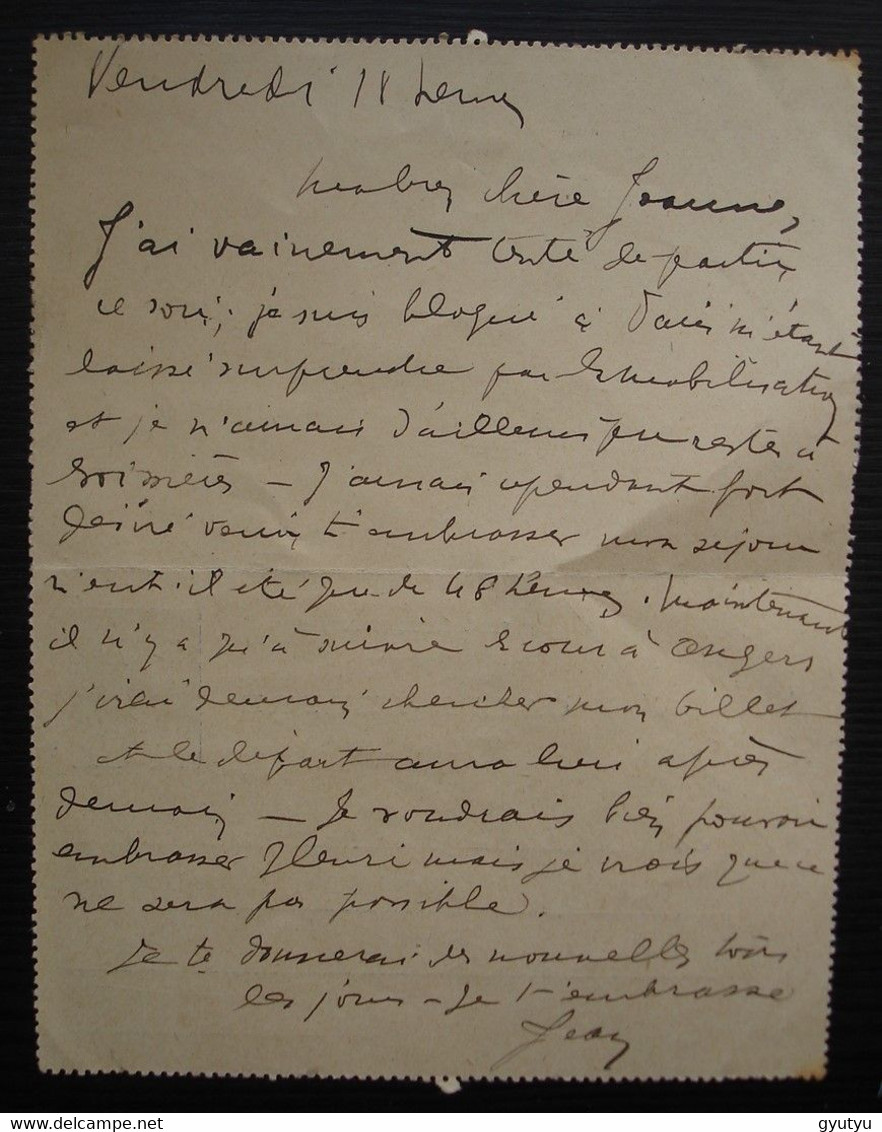 Vendredi 18 heures
Ma bien chère Jeanne,
J'ai vainement tenté de partir
ce soir; je suis bloqué à Paris m'étant
laissé surprendre par la mobilisation
et je n'aurais d'ailleurs pu rester à
— J'aurais cependant fort
désiré venir t'embrasser mon séjour
n'eut-il été que de 48 heures. Maintenant
il n'y a qu'à suivre le cours à Angers
j'irai demain chercher mon billet
et le départ aura lieu après
demain — Je voudrais bien pouvoir
embrasser Henri mais je crois que ce
ne sera pas possible.
Je te donnerai des nouvelles tous
les jours — Je t'embrasse
Jean
gyutyu